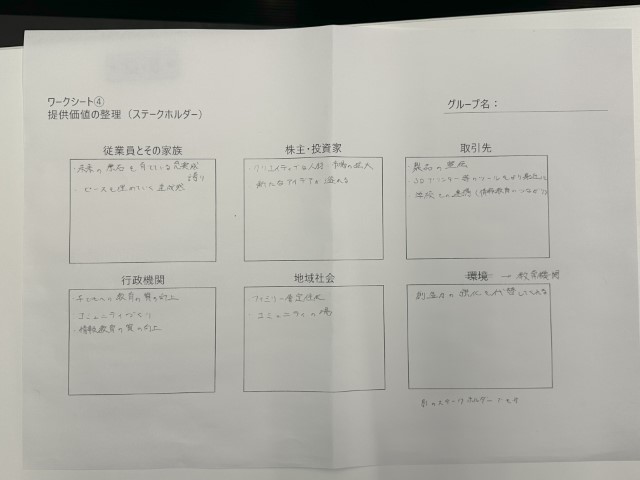 ワークシート④
提供価値の整理（ステークホルダー）
グループ名：
従業員とその家族
・未来の 先を育てている 充実感
誇り
ピースを埋めていく達成感
株主・投資家
・クリエイティブな人材・市場の拡大
新たなアイデアが 溢れる
取引先
・製品の
・3Dプリンター等のツールをより身近に
学校との連携（情報教育につながる）
行政機関
子どもへの教育の質の向上
コミュニティづくり
・情報教育の質の向上
地域社会
ファミリー層定住化
コミュニティの場
環境 → 教育機関
創造力の 強化を代替してくれる
別のステークホルダーでも可